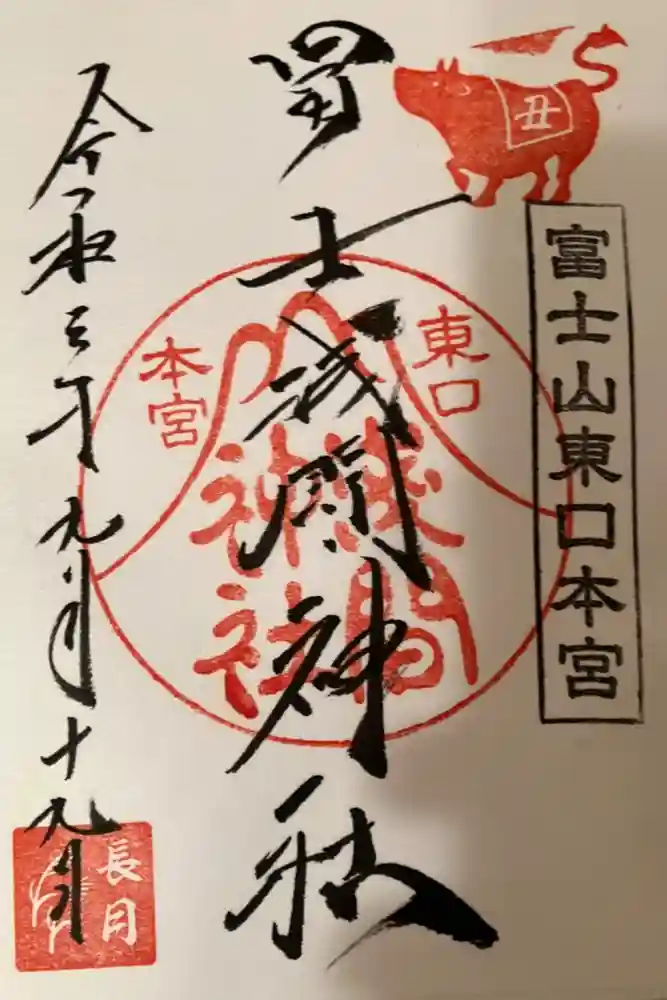 丑
富士山東口本宮
冨士浅間神社
東口
本宮
浅間
神社
令和三年九月十九日
長月